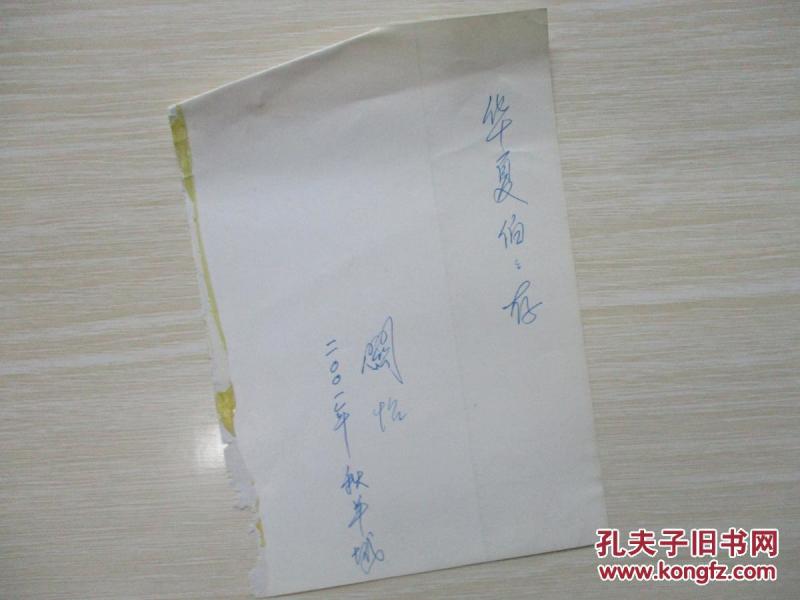 华夏伯:存
闋怡
二〇〇一年秋羊城
孔夫子旧书网
www.kongfz.com